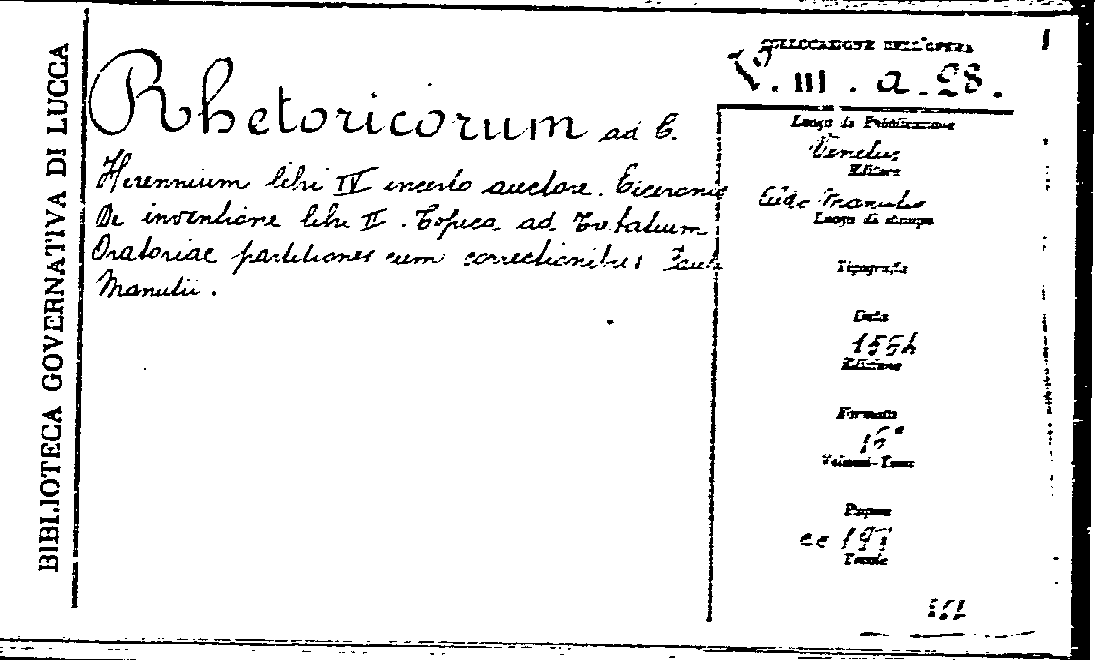 BIBLIOTECA GOVERNATIVA DI LUCCA
Rhetoricorum ad C.
Herennium libri IV incerto auctore. Ciceronis
De inventione libri II. Topica ad
Oratoriae partitiones cum correctionibus Pauli
Manutii.
COLLOCAZIONE DELL'OPERA
III. a. 28.
Luogo di Pubblicazione
Editore
Manutius
Luogo di stampa
Tipografia
Data
Edizione
Formato
16°
Volumi-Tomi
Pagine
cc 197
Tavole